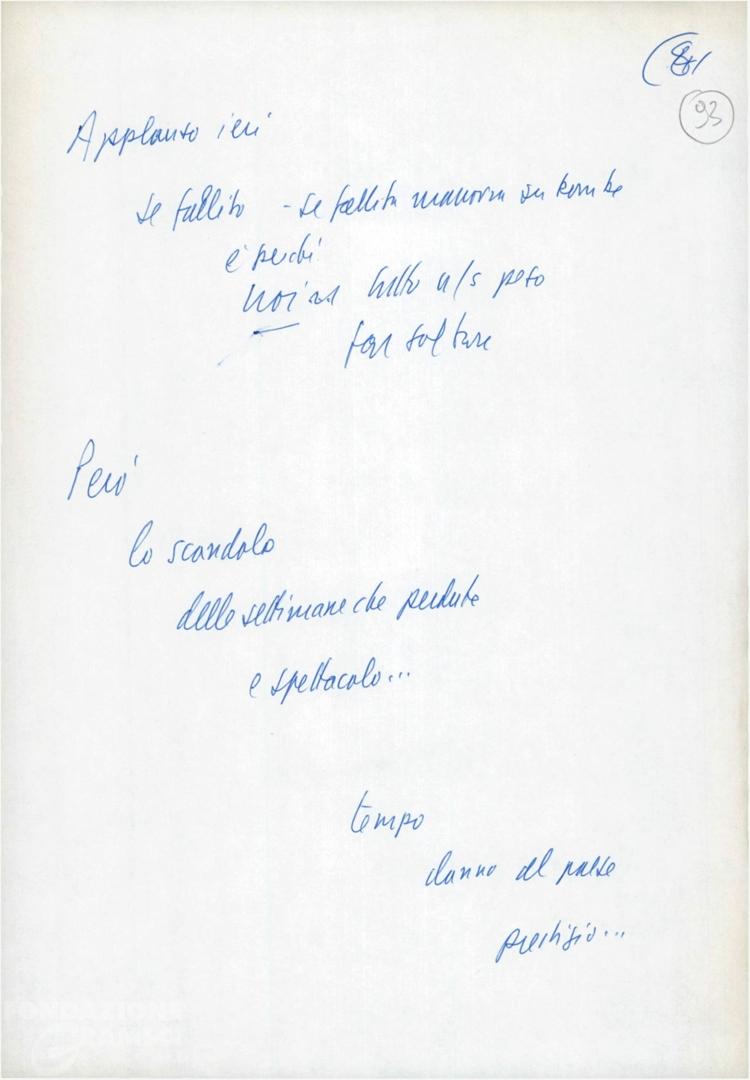 (8
93
Applauso ieri
se fallito - se fallita manovra su
è perché
noi tutto n/s peso
far saltare
Però
lo scandalo
delle settimane che perdute
e spettacolo...
tempo
danno al paese
prestigio...
FONDAZIONE
GRAMSCI